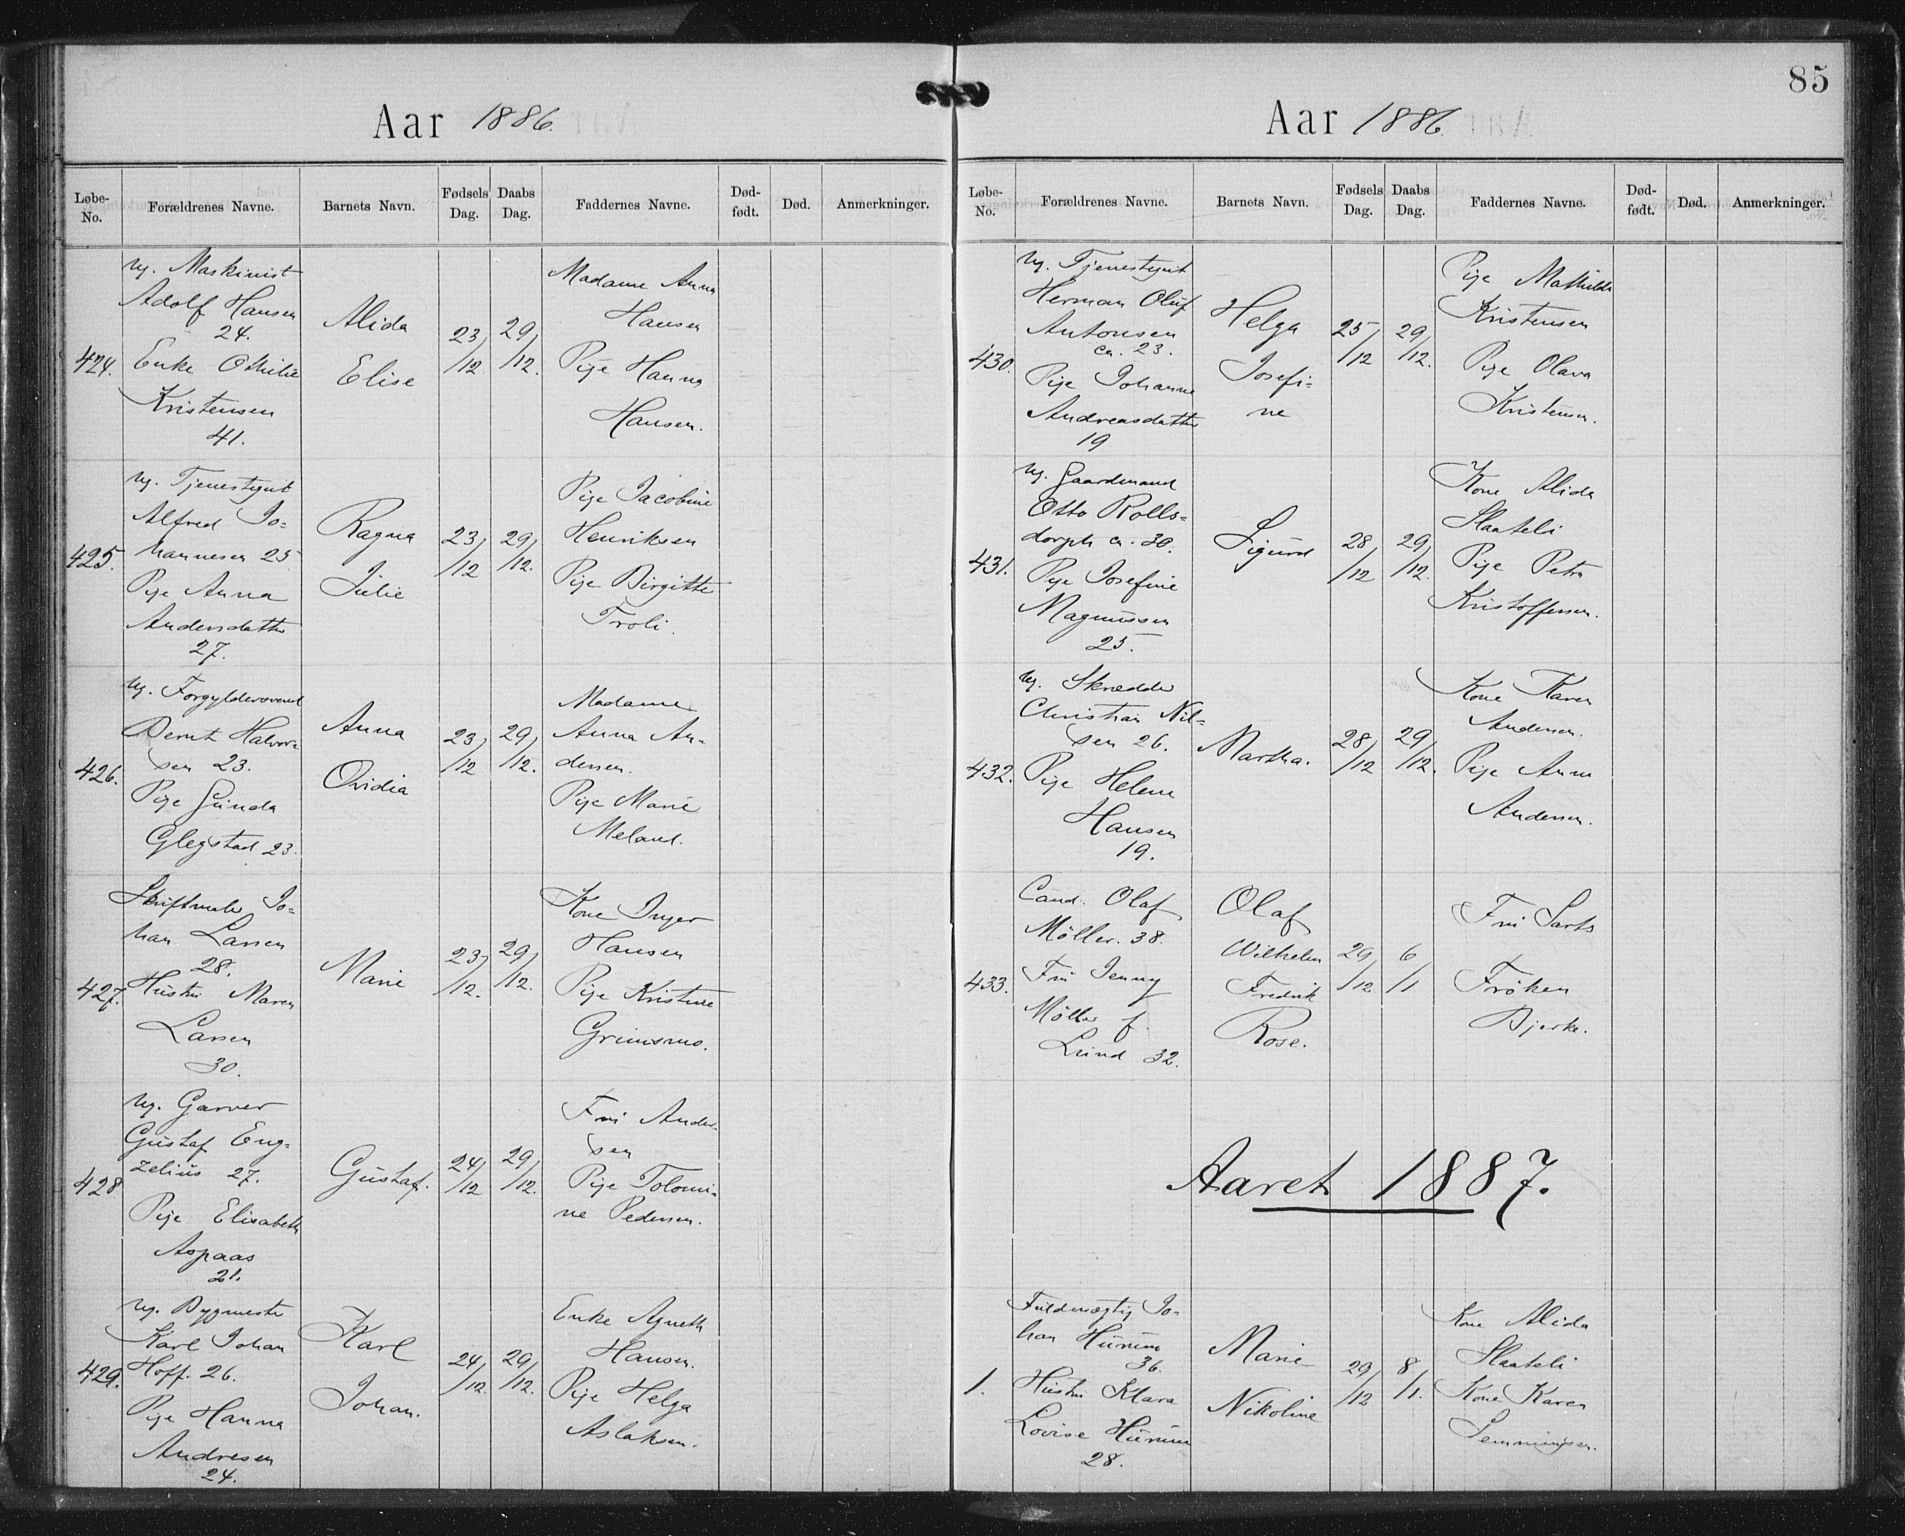 Aar 1886.
Løbe-No. Forældrenes Navne. Barnets Navn. Fødsels Dag. Daabs Dag. Faddernes Navne. Død-født. Død. Anmerkninger.
424.
Ug. Maskinist
Adolf Hansen
24.
Enke Othilie
Kristensen
41.
Alida
Elise
23/12
29/12.
Madame Anna
Hansen
Pige Hanna
Hansen.
425.
Ug. Tjenestgut
Alfred Jo-
hannesen 25
Pige Anna
Andersdatter
27.
Ragna
Julie
23/12
29/12.
Pige Jacobine
Henriksen
Pige Birgitte
Troli.
426.
Ug. Forgyldersvend
Bernt Halvor-
sen 23.
Pige Gunda
Glegstad 23.
Anna
Ovidia
23/12
29/12.
Madame
Anna An-
dersen.
Pige Marie
Meland.
427.
Skiftmaler Jo-
han Larsen
28.
Hustru Maren
Larsen
30.
Marie
23/12.
29/12.
Kone Inger
Hansen
Pige Kristine
Grimsmo.
428
Ug. Garver
Gustaf Eng-
zelius 27.
Pige Elisabeth
Aspaas
21.
Gustaf.
24/12
29/12.
Fru Ander-
sen
Pige Tolomi-
ne Pedersen.
429.
Ug. Bygmester
Karl Johan
Hoff. 26.
Pige Hanna
Andresen
24.
Karl
Johan.
24/12
29/12.
Enke Agneth
Hansen.
Pige Helga
Aslaksen.
85
Aar 1886.
Løbe-No. Forældrenes Navne. Barnets Navn. Fødsels Dag. Daabs Dag. Faddernes Navne. Død-født. Død. Anmerkninger.
430.
Ug. Tjenestgut
Herman Oluf
Antonsen
ca. 23.
Pige Johanne
Andreasdatter
19
Helga
Josefi-
ne
25/12
29/12.
Pige Mathilda
Kristensen
Pige Olava
Kristensen.
431.
Ug. Gaardmand
Otto Rolls-
dorph ca. 30.
Pige Josefine
Magnussen
25.
Sigurd
28/12
29/12.
Kone Alida
Slaateli
Pige Petra
Kristoffersen.
432.
Ug. Skrædder
Christian Nil-
sen 26.
Pige Helene
Hansen
19.
Martha.
28/12
29/12.
Kone Karen
Andersen.
Pige Anna
Andersen.
433.
Cand. Olaf
Møller. 38.
Fru Jenny
Møller f.
Lund 32.
Olaf
Wilhelm
Fredrik
Rose.
29/12
6/1
Fru Sartz
Frøken
Bjerke.
Aaret 1887.
1.
Fuldmægtig Jo-
han Hurum
36.
Hustru Klara
Lovise Hurum
28.
Marie
Nikoline
29/12
8/1.
Kone Alida
Slaateli
Kone Karen
Semmingsen.